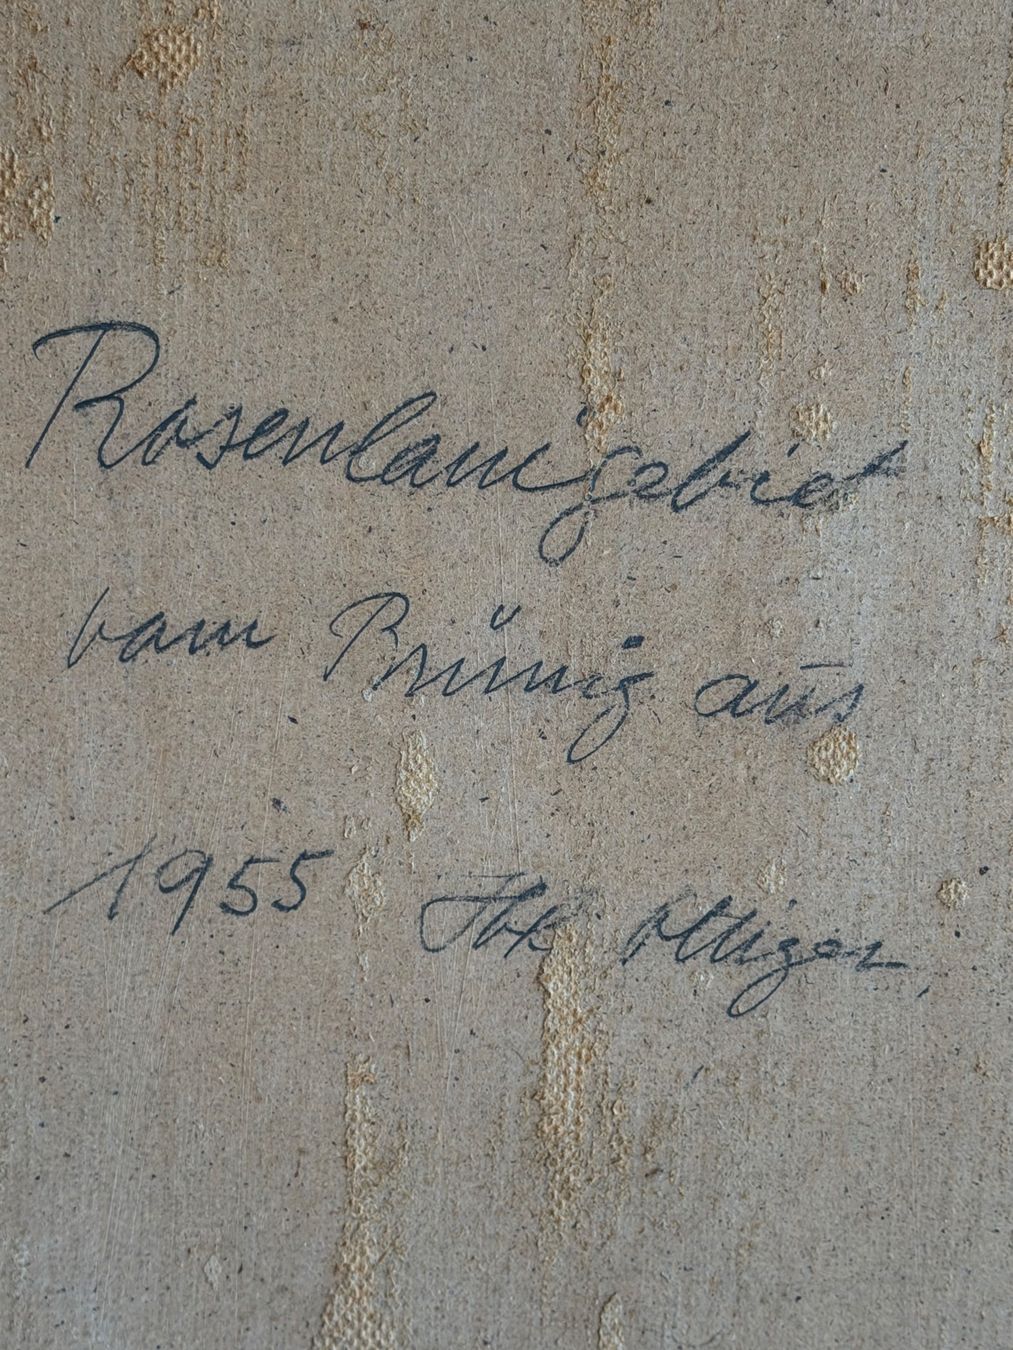 Rosenlauigebiet
vom Brünig aus
1955